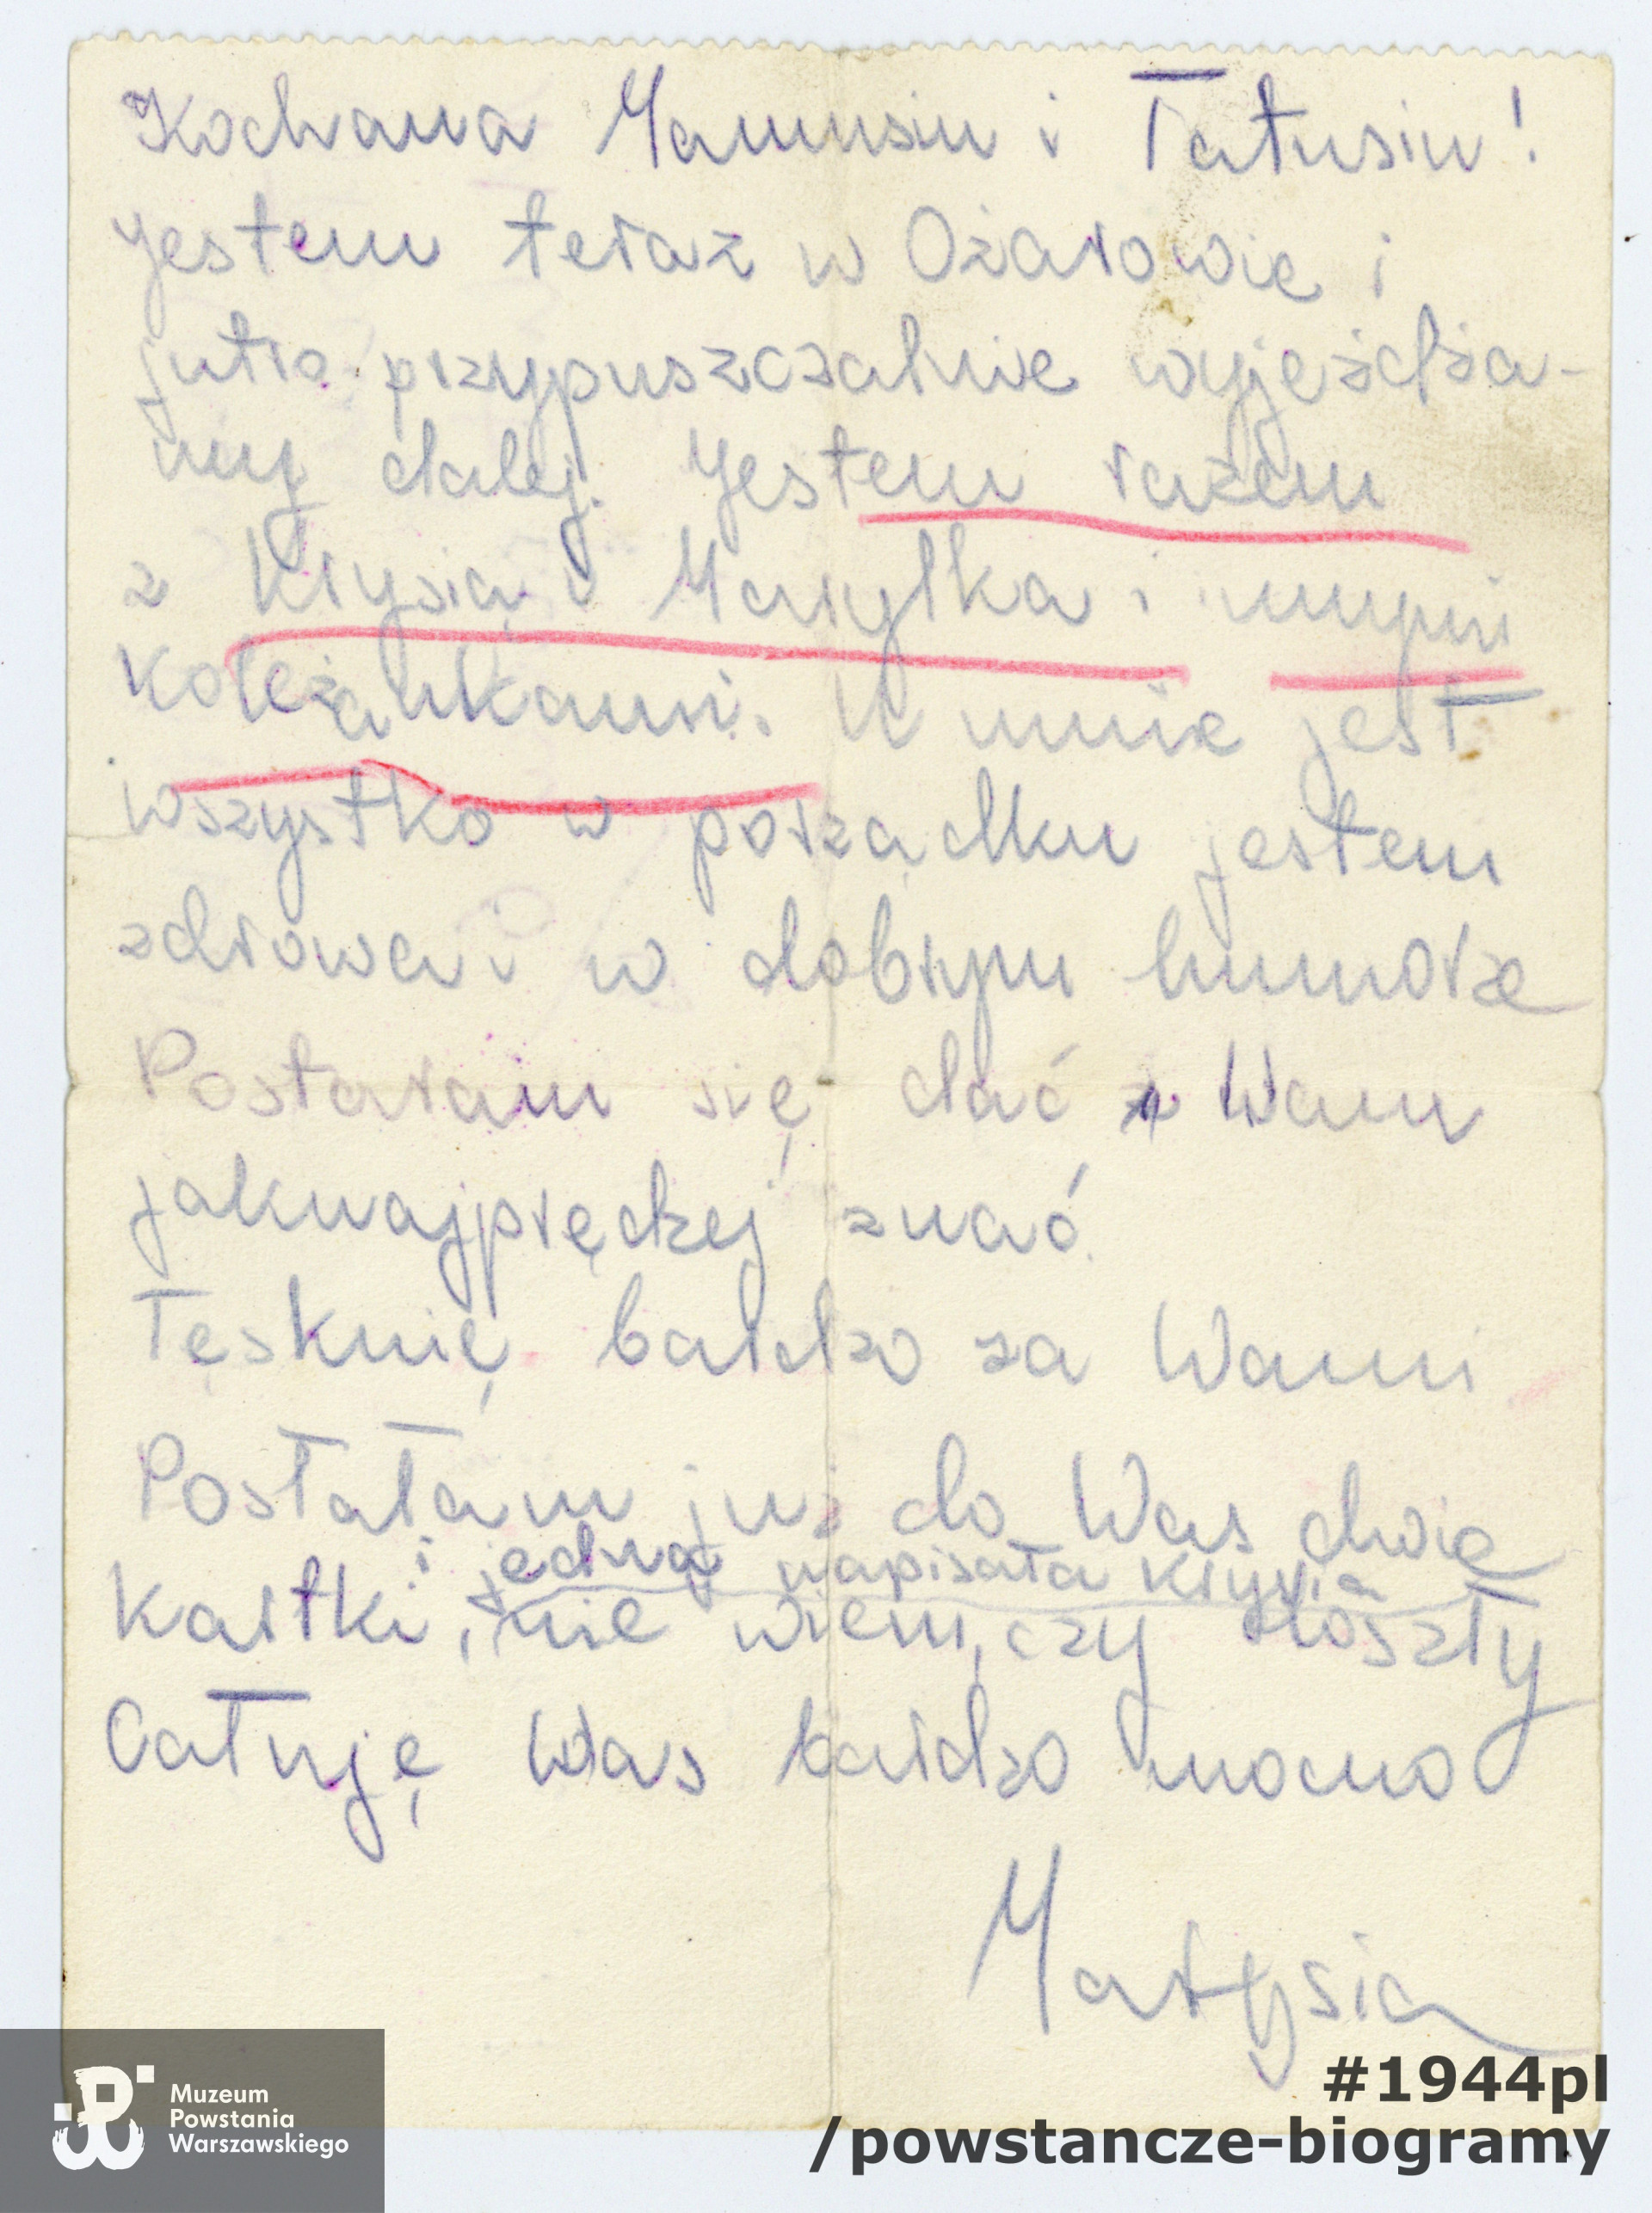 Kochana Mamusiu i Tatusiu!
Jestem teraz w Ożarowie i
jutro przypuszczalnie wyjeżdża-
my dalej. Jestem razem
z Krysią i Marylka i innymi
koleżankami. U mnie jest
wszystko w porządku jestem
zdrowa i w dobrym humorze
Postaram się dać Wam
jaknajprędzej znać.
Tęsknię bardzo za Wami
Posłałam już do Was dwie
i jedną napisała Krysia
kartki, nie wiem, czy doszły
Całuję Was bardzo mocno
Marysia
Muzeum
Powstania
Warszawskiego
#1944pl
/powstancze-biogramy